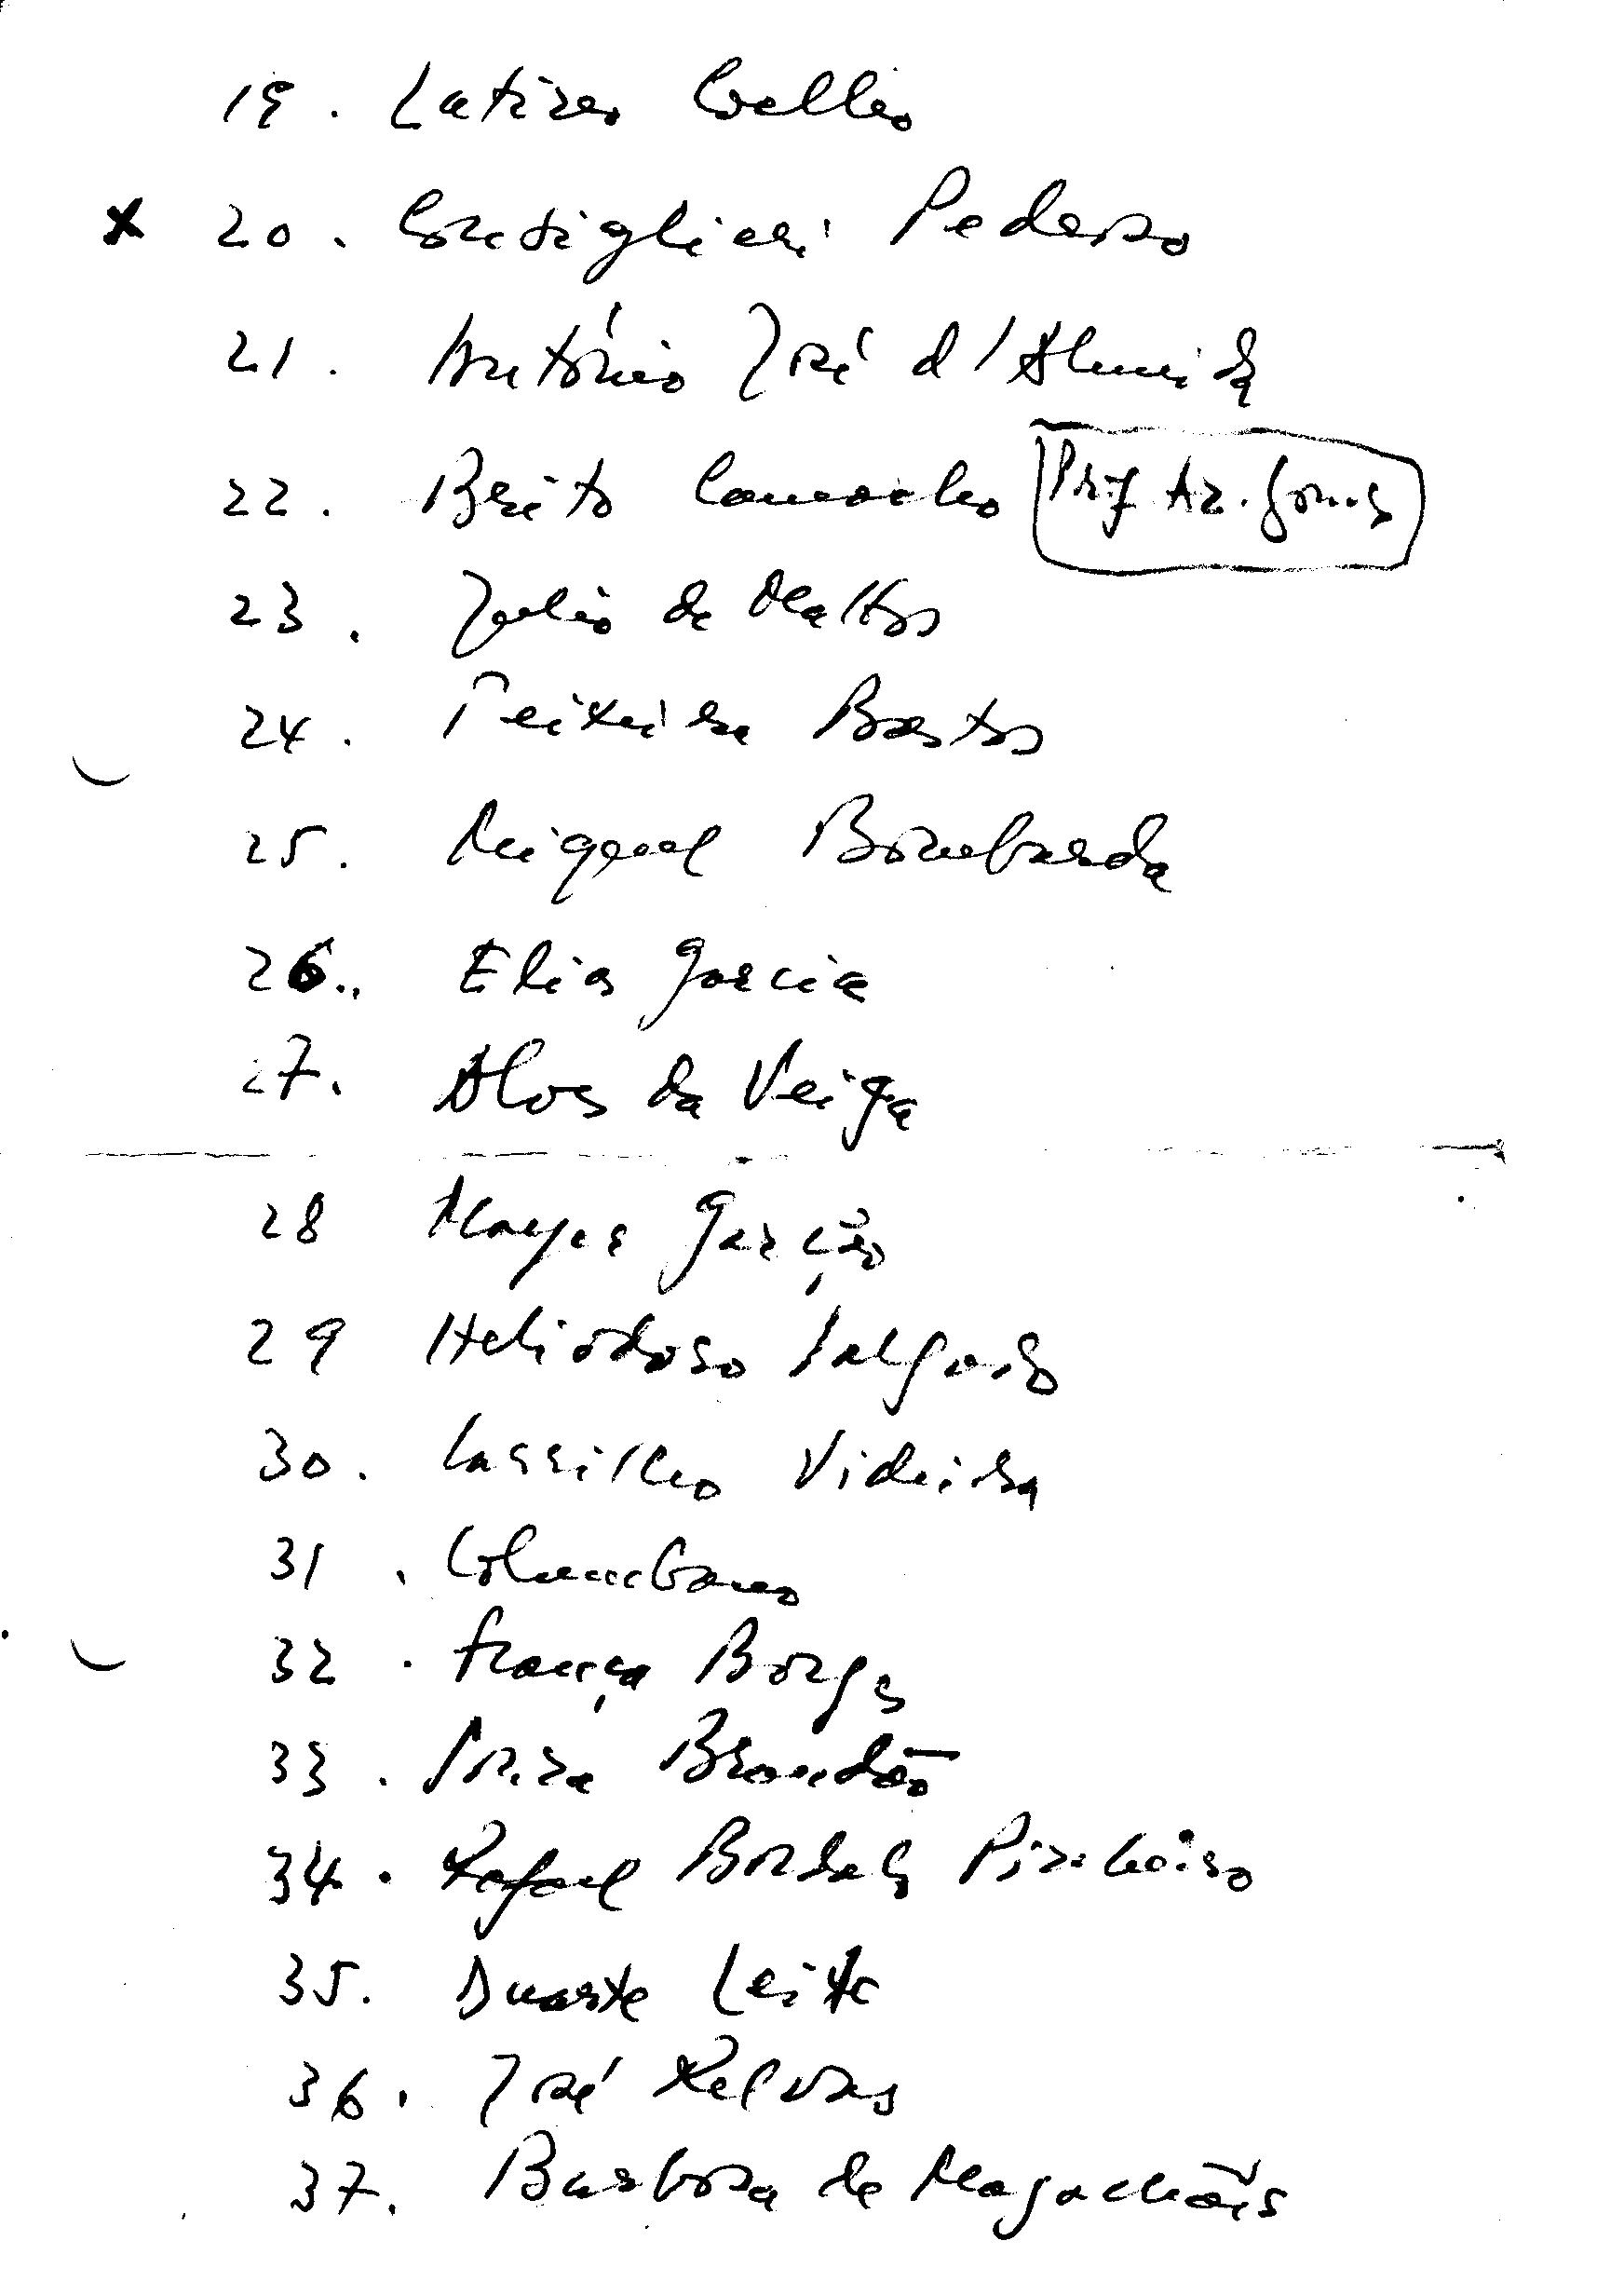 19. Latino Coelho
x 20. Consiglieri Pedroso
21. António José d'Almeida
22. Brito Camacho Prof Az. Gomes
23. Julio de Mattos
24. Teixeira Bastos
25. Miguel Bombarda
26. Elias Garcia
27. Alves da Veiga
28 Mayer Garção
29 Heliodoro Salgado
30. Cassilho Videira
31. Columbano
32. França Borges
33. Brandão
34. Rafael Bordalo Pinheiro
35. Duarte Leite
36. José Relvas
37. Barbosa de Magalhães